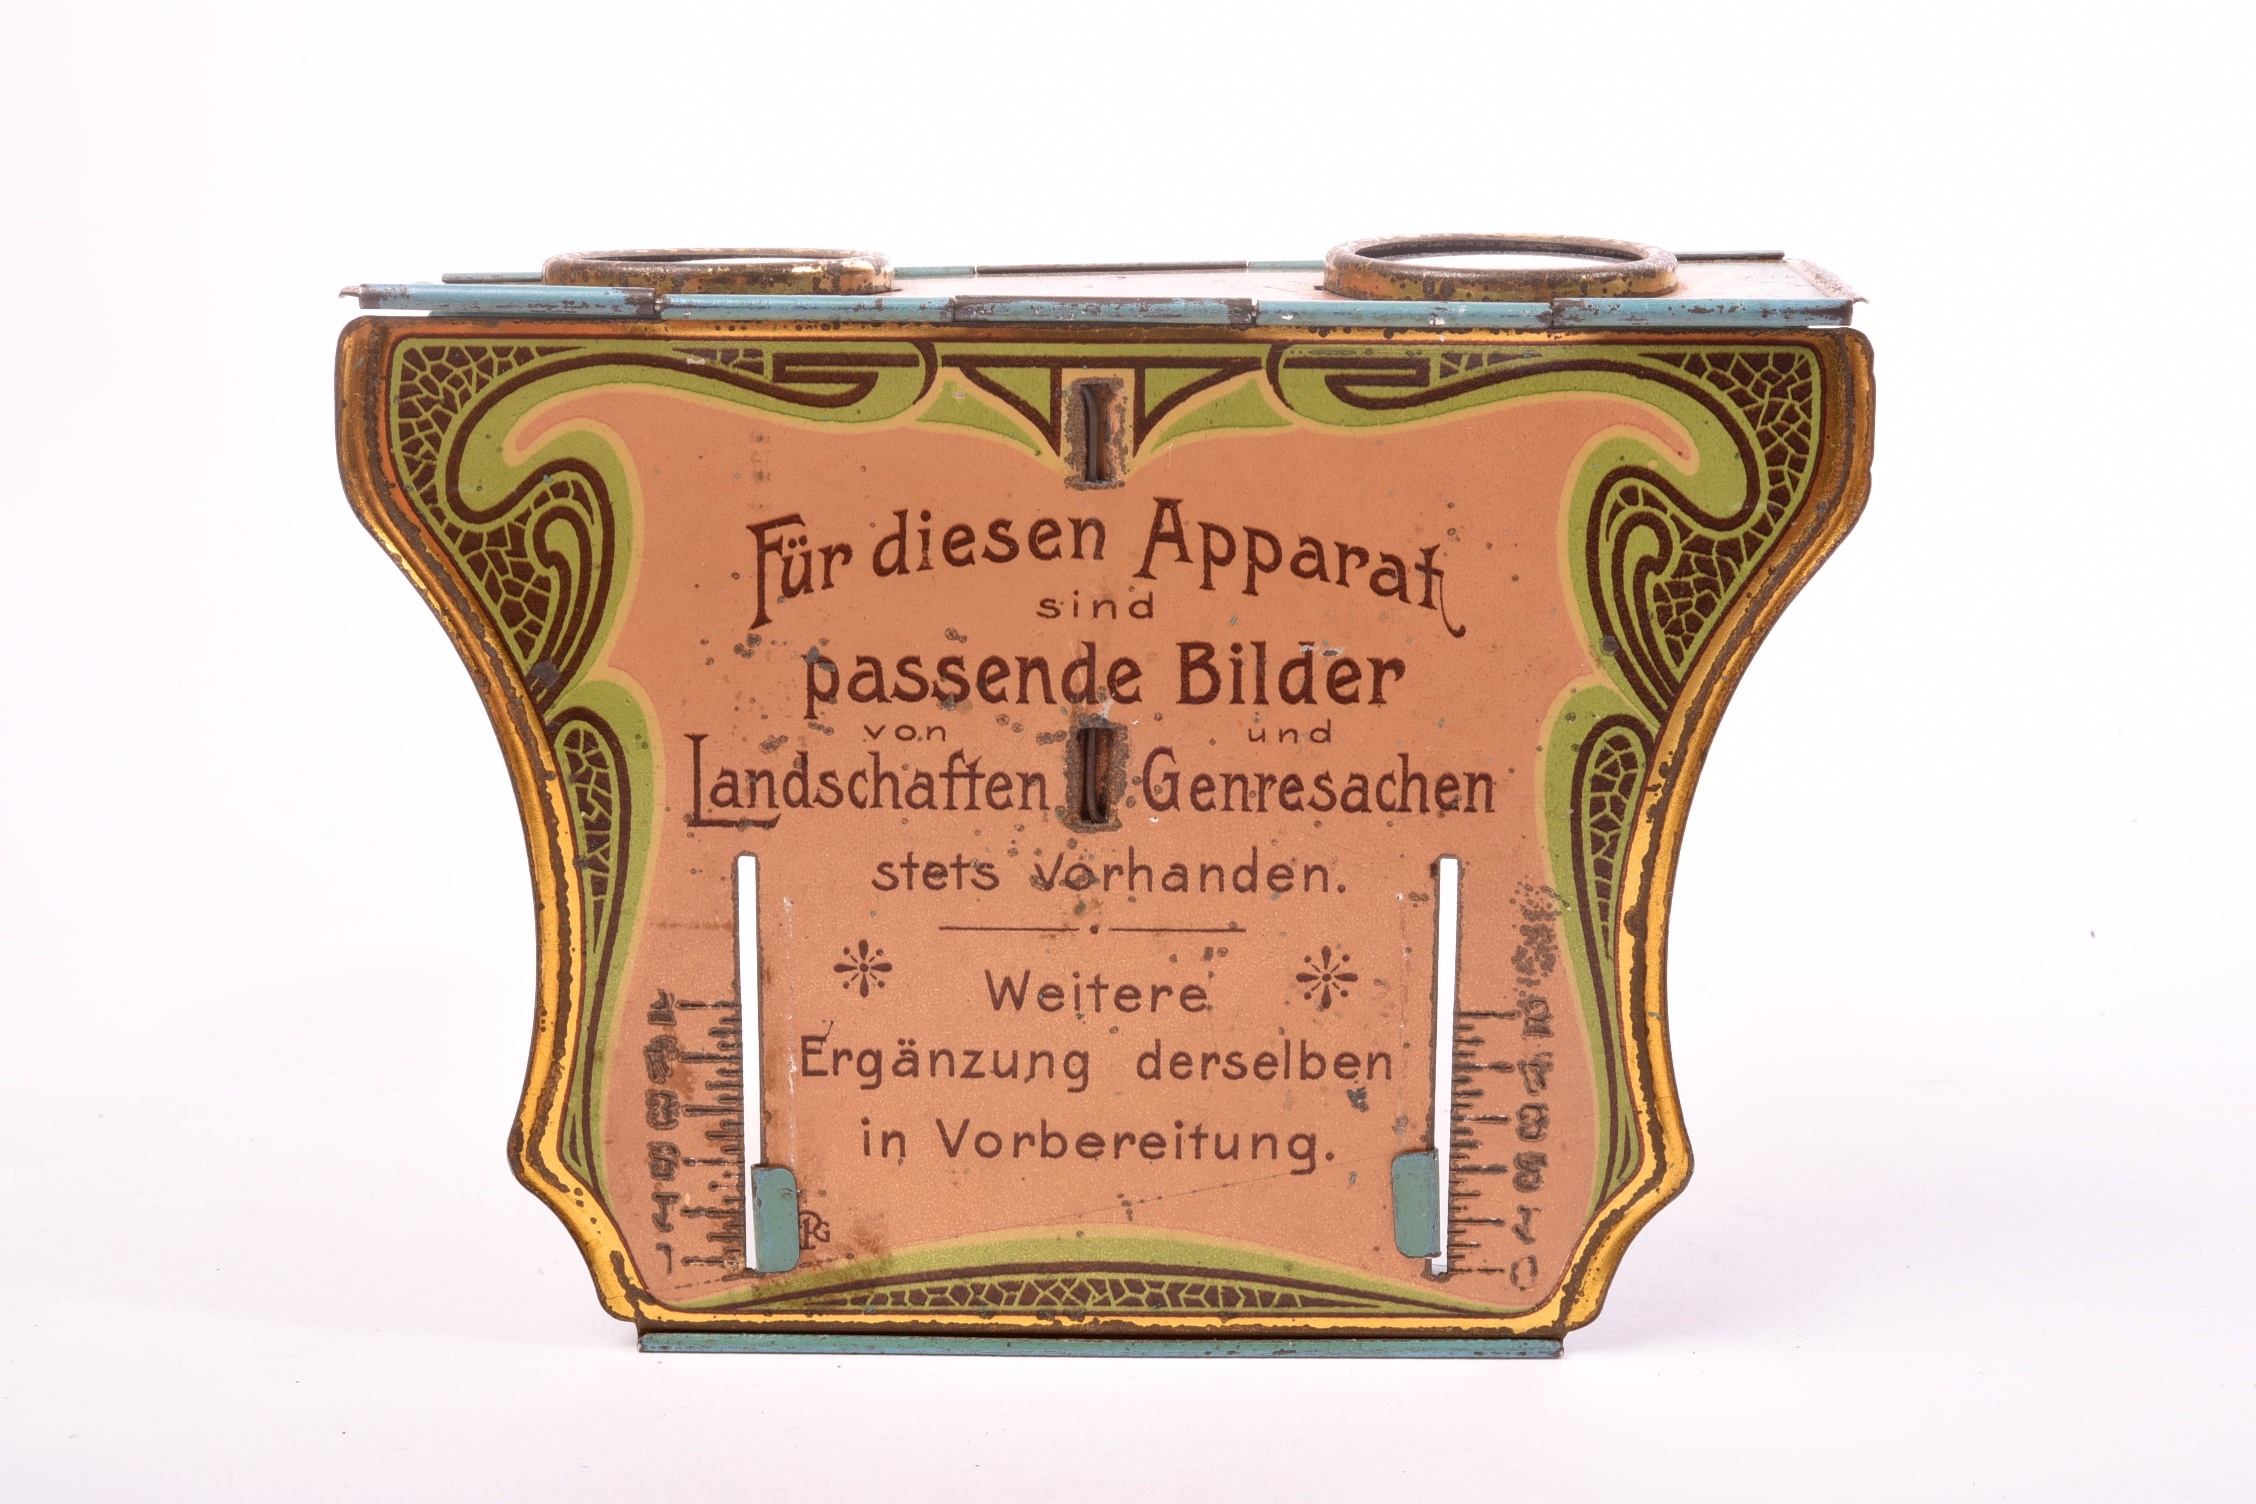 Für diesen Apparat
sind
passende Bilder
von und
Landschaften Genresachen
stets vorhanden.
Weitere
Ergänzung derselben
in Vorbereitung.